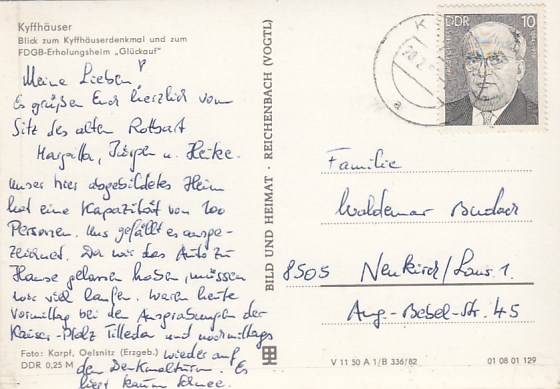 Kyffhäuser
Blick zum Kyffhäuserdenkmal und zum
FDGB-Erholungsheim „Glückauf"
Meine Lieben!
Es grüßen Euch herzlich vom
Sitz des alten Rotbart
Margitta, Jürgen u. Heike.
Unser hier abgebildetes Heim
hat eine Kapazität von 200
Personen. Uns gefällt es ausge-
zeichnet. Da wir das Auto zu
Hause gelassen haben, müssen
wir viel laufen. Waren heute
Vormittag bei den Ausgrabungen der
Kaiser-Pfalz Tilleda und nachmittags
wieder auf
den Denkmalturm. Es
liegt kaum Schnee.
Foto: Karpf, Oelsnitz (Erzgeb.)
DDR 0,25 M
BILD UND HEIMAT · REICHENBACH (VOGTL)
DDR 10
a
Familie
Waldemar
8505 Neukirch/Laus. 1
Aug.-Bebel-Str. 45
V 11 50 A 1/B 336/82
01 08 01 129